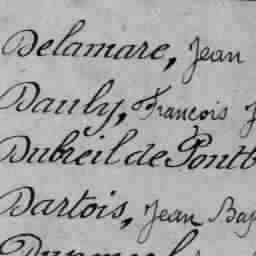 Delamare, Jean
Dauly, François J
Dubreil de Pontb
Dartois, Jean Bap